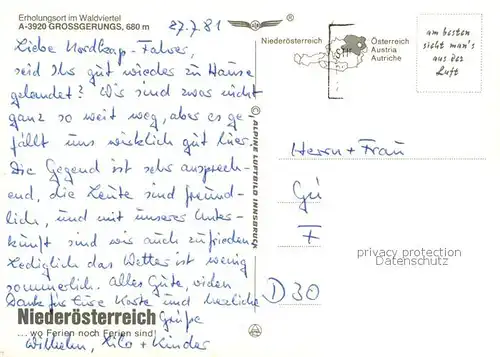 Erholungsort im Waldviertel
A-3920 GROSSGERUNGS, 680 m
27.7.81
Liebe Nordkap-Fahrer,
seid Ihr gut wieder zu Hause
gelandet? Wir sind zwar nicht
ganz so weit weg, aber es ge-
fällt uns wirklich gut hier.
Die Gegend ist sehr ansprech-
end, die Leute sind freund-
lich, und mit unserer Unter-
kunft sind wir auch zufrieden.
Lediglich das Wetter ist wenig
sommerlich. Alles Gute, vielen
Dank für Eure Karte und herzliche
Grüße
Wilhelm, Lilo + Kinder
Niederösterreich
... wo Ferien noch Ferien sind!
© ALPINE LUFTBILD INNSBRUCK
Niederösterreich
Österreich
Austria
Autriche
am besten
sieht man's
aus der
Luft
Herrn + Frau
Gü
F
D 30
privacy protection
Datenschutz